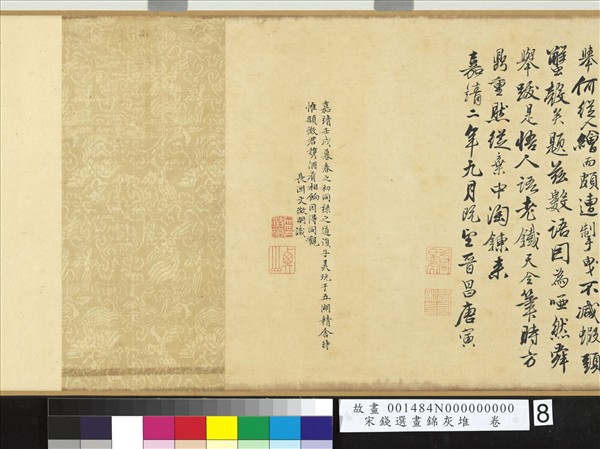 舉何從人繪而頗遭掣曳不減蝦頭
蟹殼矣題茲數語因為啞然舜
舉跋是悟人語老鐵天全筆時方
鼎重然從棄中淘鍊來
嘉靖二年九月既望晉昌唐寅
嘉靖壬戌暮春之初同祿之道復子美玩于五湖精舍時
惟顯徵君攜酒肴相餉因得同觀
長洲文徵明識
故畫 001484N000000000
宋錢選畫錦灰堆 卷
8